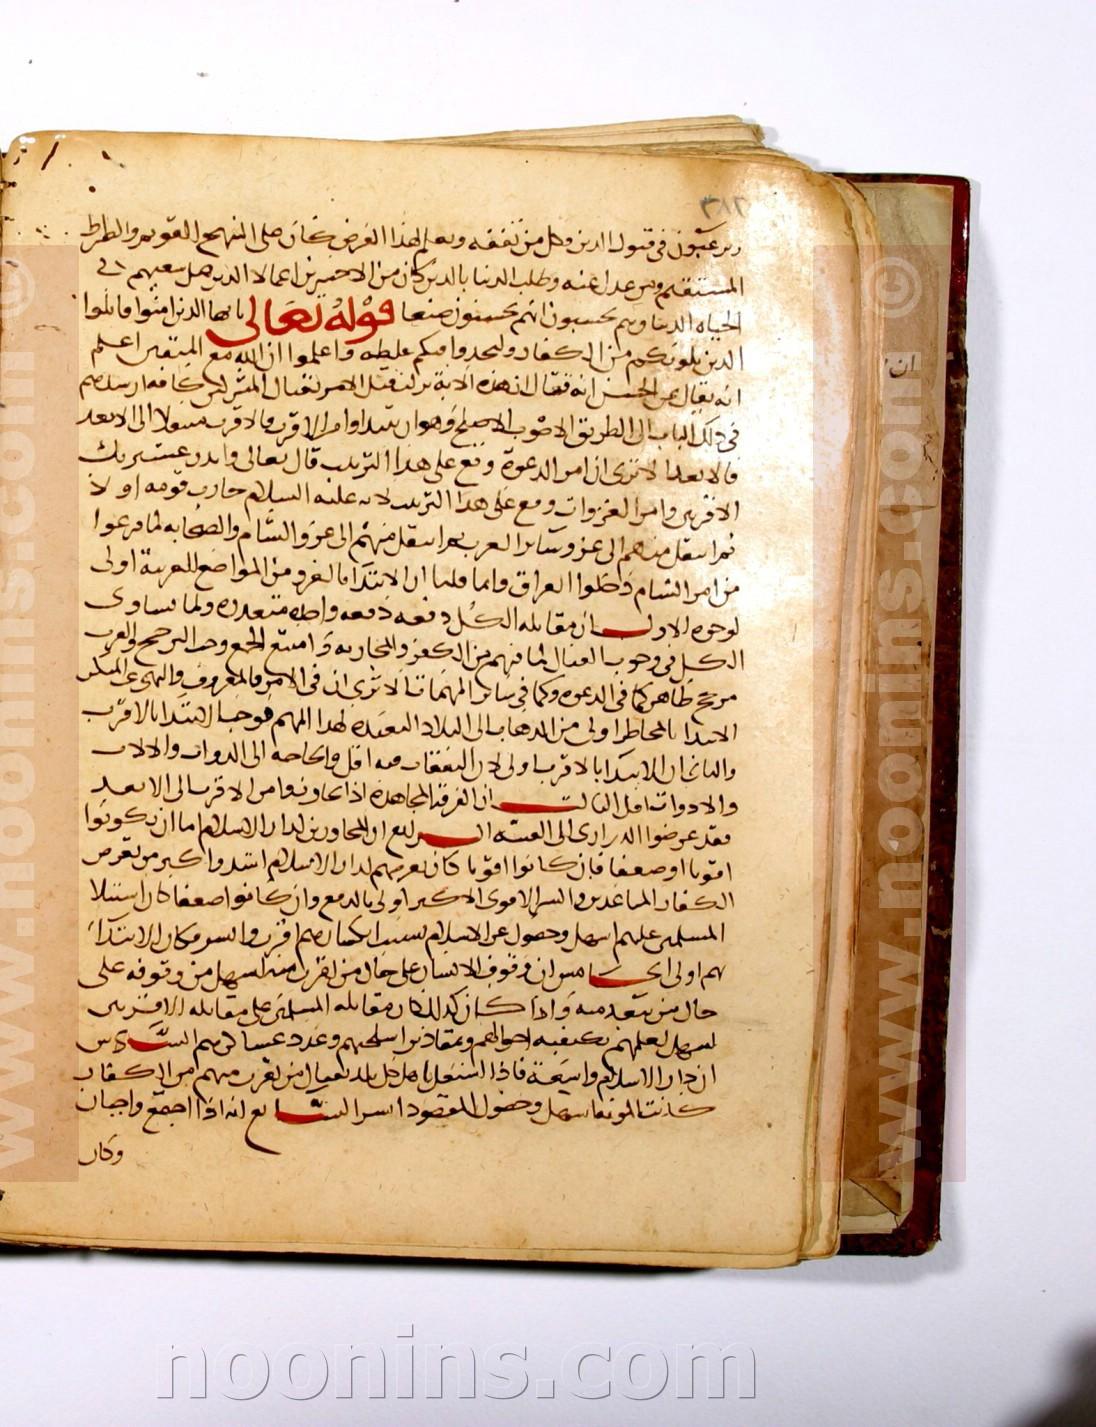 ويرغبون في قبول الدين وكل من تفقه وتعلم لهذا الغرض كان على المنهج القويم والصراط
المستقيم ومن عدل عنه وطلب الدنيا بالدين كان من الاخسرين اعمالا الذين ضل سعيهم في
الحياه الدنيا وهم يحسبون انهم يحسنون صنعا قوله تعالى يا ايها الذين امنوا قاتلوا
الذين يلونكم من الكفار وليجدوا فيكم غلظه واعلموا ان الله مع المتقين اعلم
انه نقل عن الحسن انه قال ان هذه الاية نزلت قبل الامر بقتال المشركين كافه ارسلهم
في ذلك الباب الى الطريق الاصوب الاصلح وهو ان يبتداوا من الاقرب فالاقرب منتقلا الى الابعد
فالابعد الا ترى ان امر الدعوة وقع على هذا الترتيب قال تعالى وانذر عشيرتك
الاقربين وامر الغزوات وقع على هذا الترتيب لانه عليه السلام حارب قومه اولا
ثم انتقل منهم الى غزو سائر العرب ثم انتقل منهم الى غزو الشام والصحابه لما فرغوا
من امر الشام دخلوا العراق وانما قلنا ان الابتدا بالغزو من المواضع القريبة اولى
لوجوه الاول ان مقابله الكل دفعه واحده متعذره ولما تساوى
الكل في وجوب القتال لما فيهم من الكفر والمحاربه وامتنع الجمع وجب الترجيح والقرب
مرجح ظاهر كما في الدعوه وكما في سائر المهمات الا ترى ان في الامر بالمعروف والنهى عن المنكر
الابتدا بالحاضر اولى من الذهاب الى البلاد البعيده لهذا المهم فوجب الابتدا بالاقرب
والثاني ان الابتدا بالاقرب اولى لان النفقات فيه اقل والحاجه الى الدواب والالات
والادوات اقل الثالث ان الفرقة المجاهدة اذا تجاوزوا من الاقرب الى الابعد
فقد عرضوا الذراري الى الفتنه الرابع ان المجاورين لدار الاسلام اما ان يكونوا
اقويا او ضعفا فان كانوا اقويا كان تعرضهم لدار الاسلام اشد واكبر من تعرض
الكفار المباعدين والشر الاقوى الاكبر اولى بالدفع وان كانوا ضعفا كان استيلا
المسلمين عليهم اسهل وحصول عز الاسلام لسبب انكسارهم اقرب وايسر فكان الابتداء
بهم اولى الخامس ان وقوف الانسان على حال من يقرب منه اسهل من وقوفه على
حال من يبعد منه واذا كان كذلك كان مقابله المسلمين على مقابله الاقربين
اسهل لعلمهم بكيفيه احوالهم وبمقادير اسلحتهم وعدد عساكرهم السادس
ان دار الاسلام واسعة فاذا اشتغل اهل كل بلد بقتال من يقرب منهم من الكفار
كانت المونه اسهل وحصول المقصود ايسر السابع انه اذا اجتمع واجبان
وكان